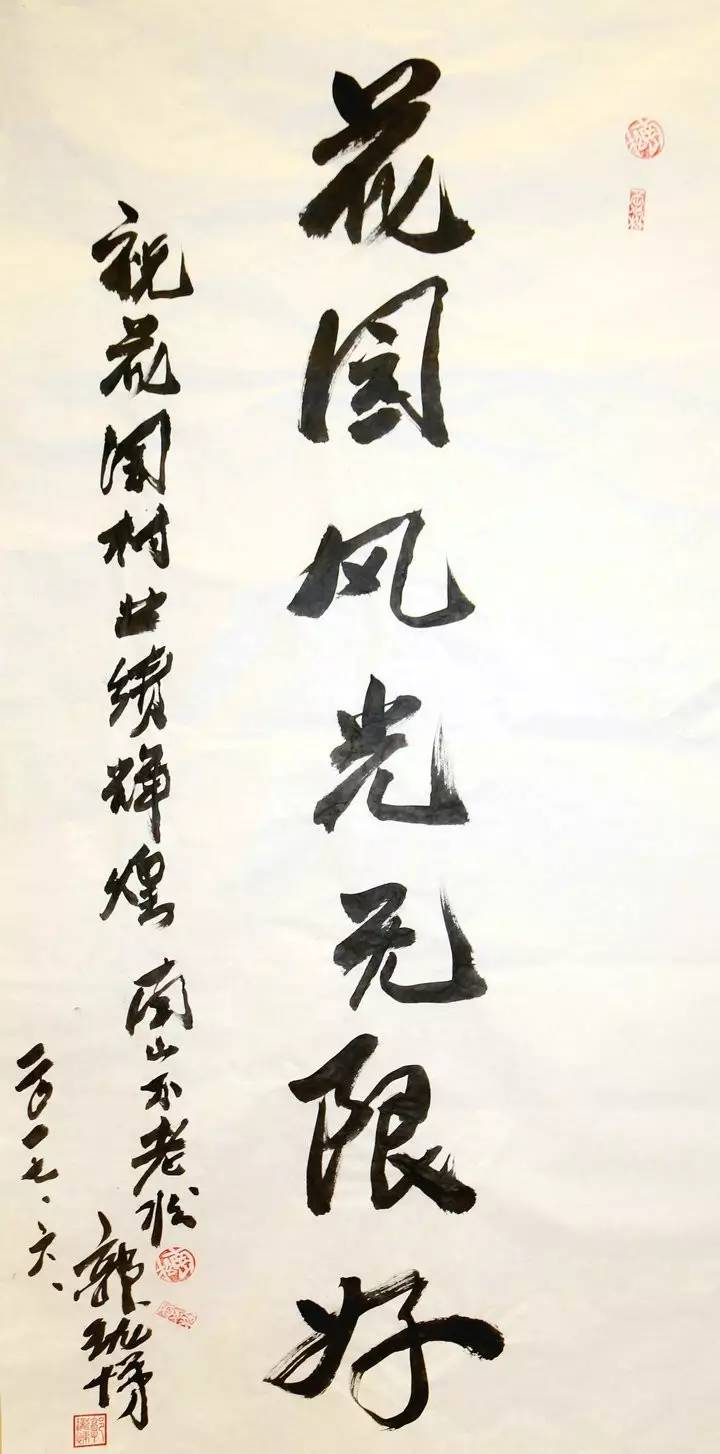 花园风光无限好
祝花园村业绩辉煌
南山不老松
郭
二〇一七.六.